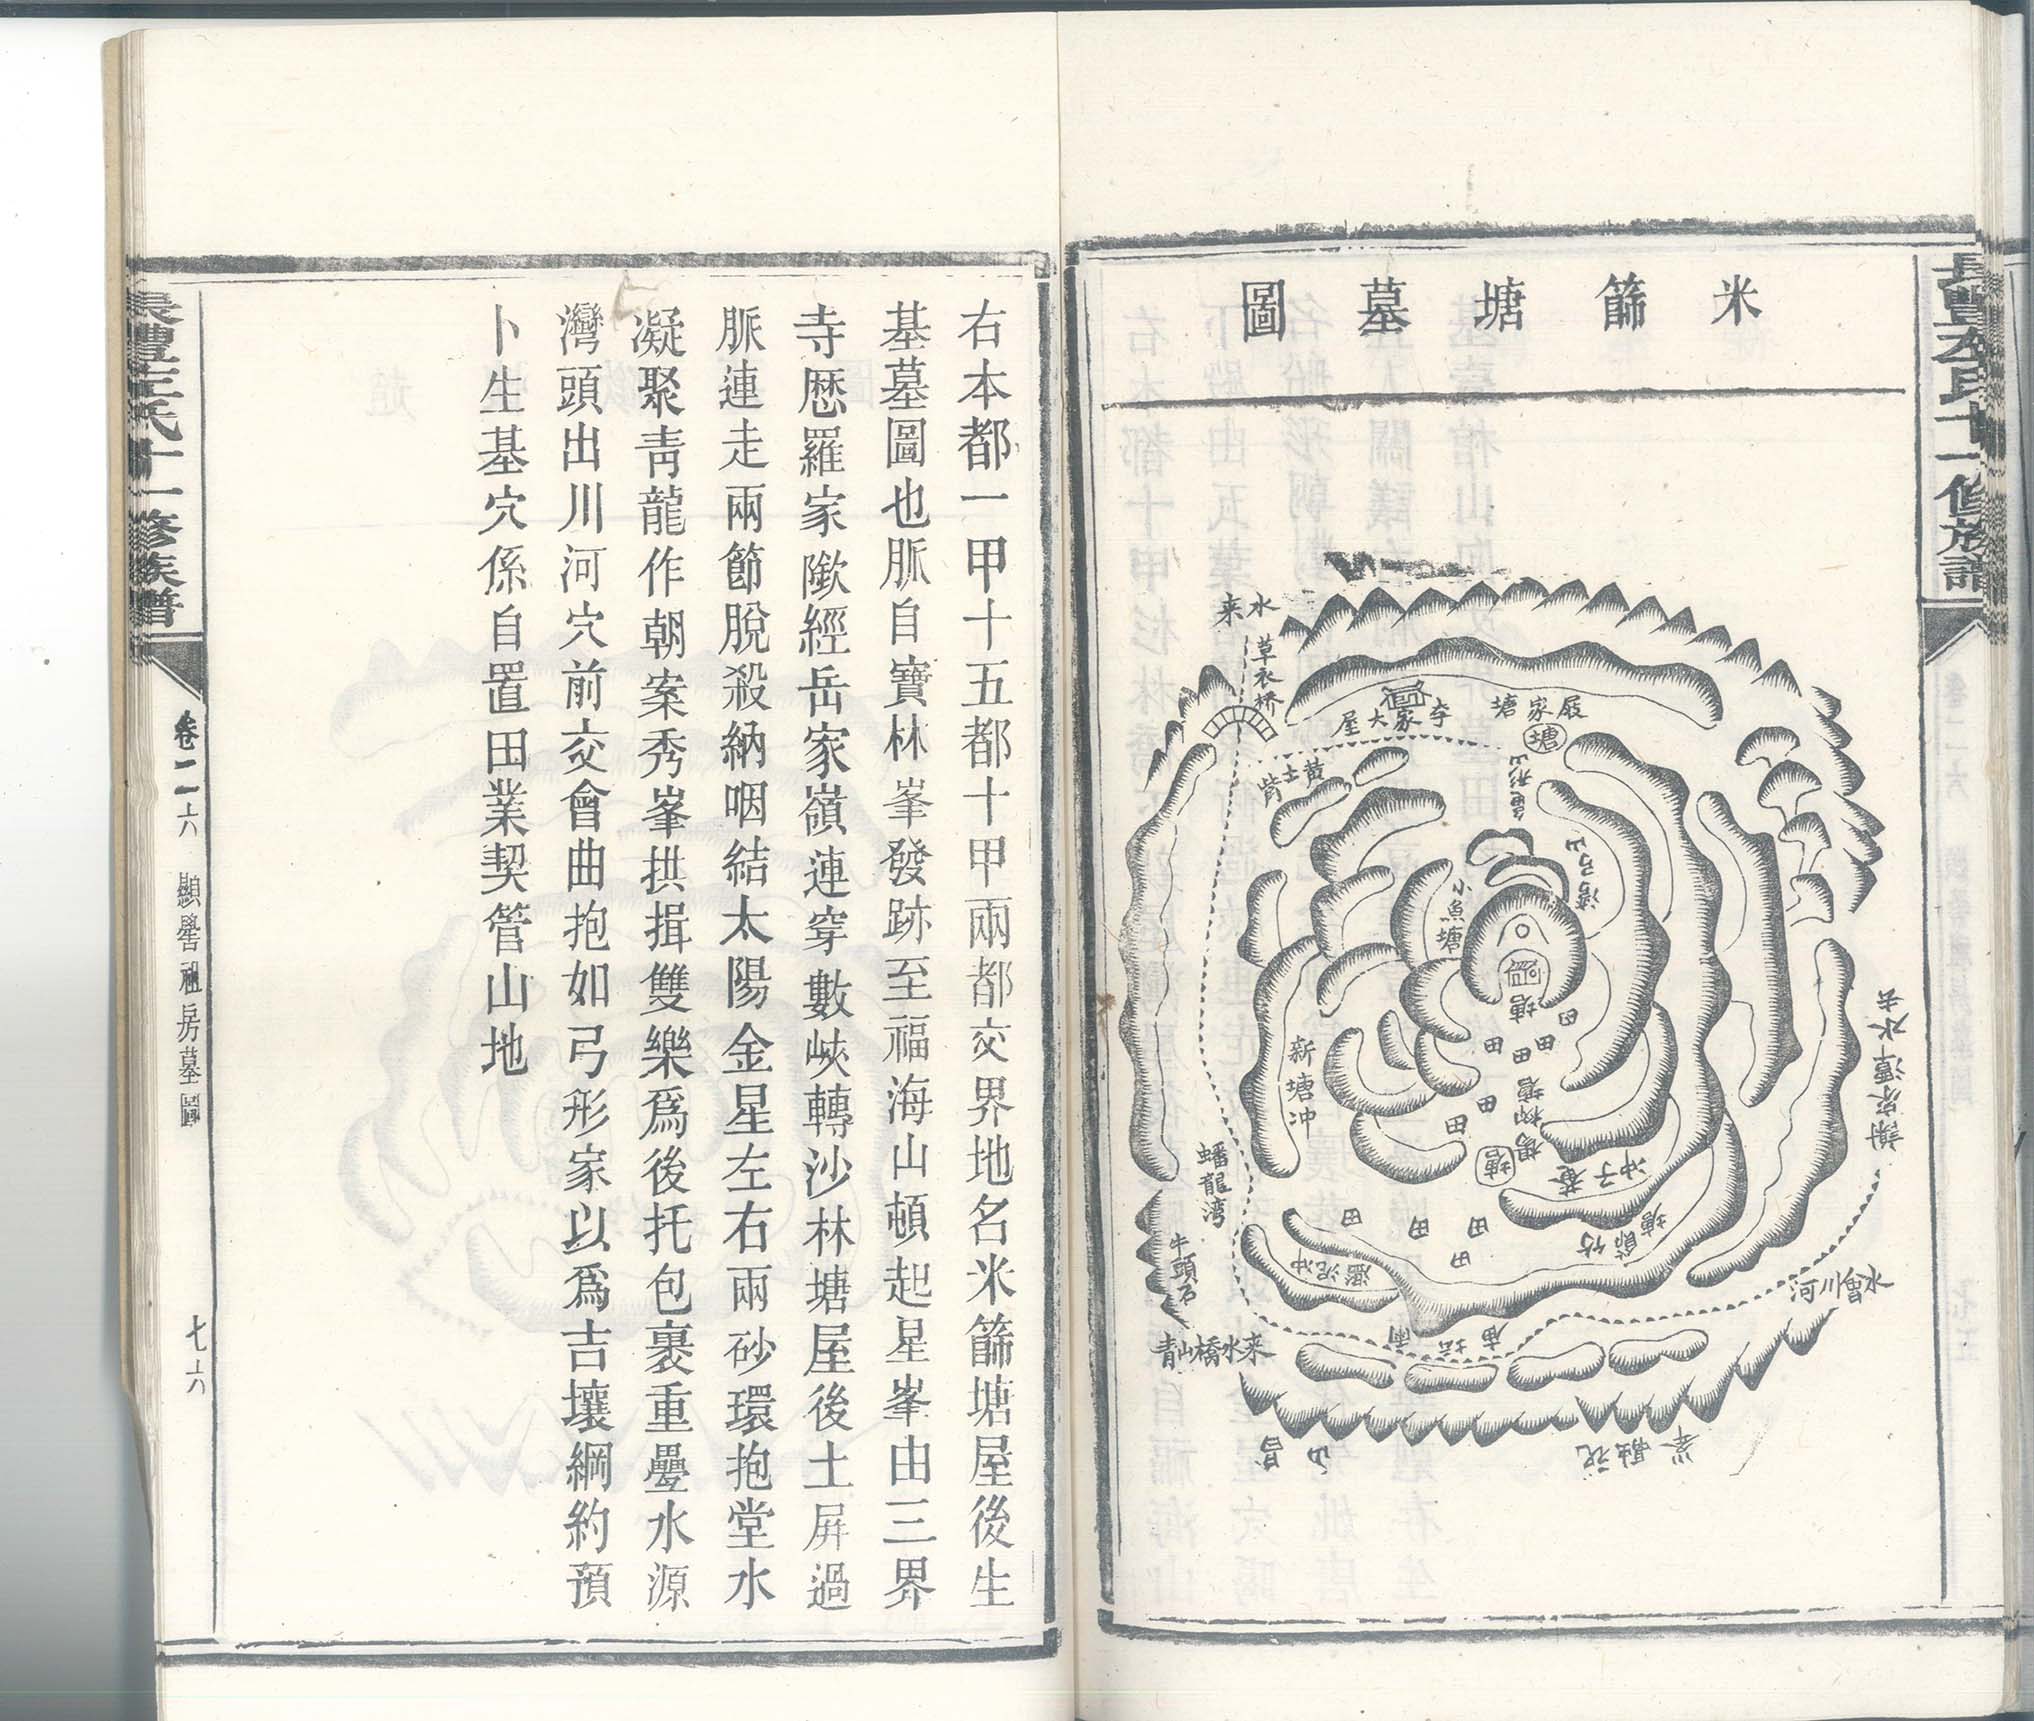 米篩塘墓圖
水来
草衣桥
李家大屋
塘
黄土嘴
小魚塘
塘
田
田
田
田
田
田
楊柳塘
塘
新塘冲
蟠龍湾
牛頭石
青山橋水来
巷子冲
竹節塘
田
田
田
田
田
濫泥冲
謝家潭水去
水會川河
祝融峯
右本都一甲十五都十甲兩都交界地名米篩塘屋後生
基墓圖也脈自寶林峯發跡至福海山頓起星峯由三界
寺歷羅家隞經岳家嶺連穿數峽轉沙林塘屋後土屏過
脈連走兩節脫殺納咽結太陽金星左右兩砂環抱堂水
凝聚靑龍作朝案秀峯拱揖雙樂爲後托包裹重疊水源
灣頭出川河穴前交會曲抱如弓形家以爲吉壤綱約預
卜生基穴係自置田業契管山地
卷二 六 顯譽祖房墓圖
七六